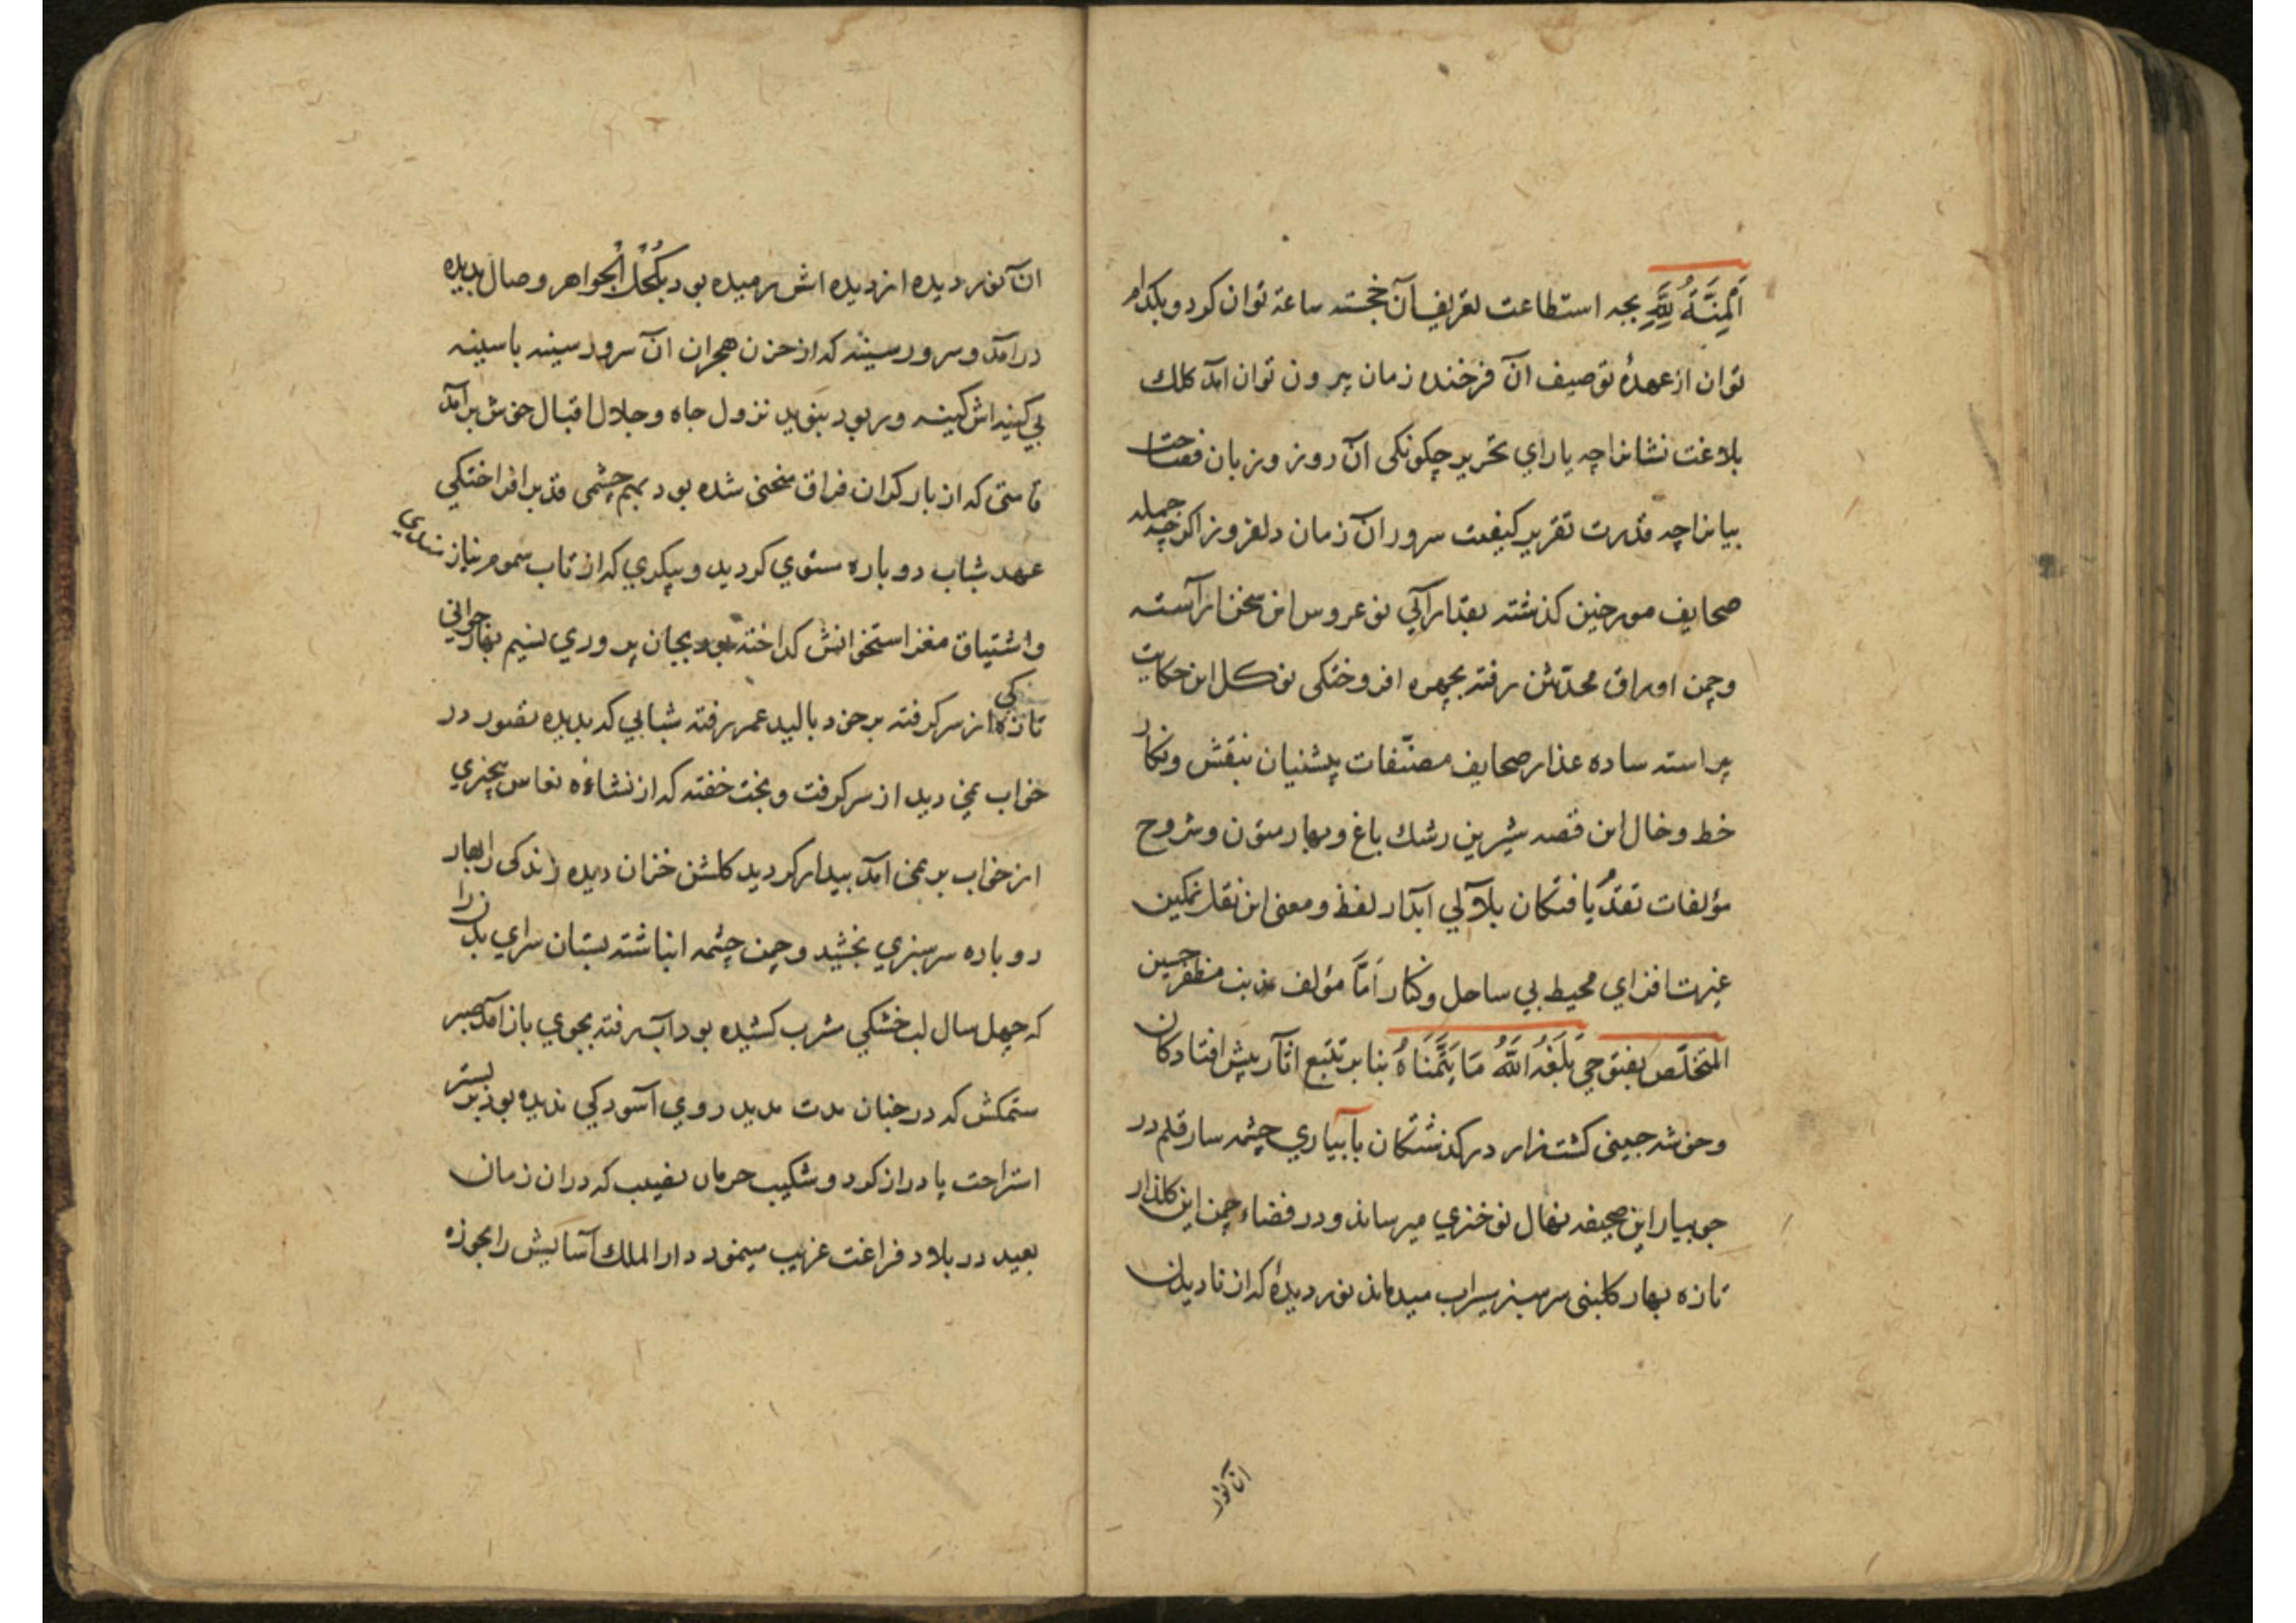 اَلْمِنَّةُ لِلّٰهِ بچه استطاعت تعریف آن خجسته ساعة توان کرد و بکدام
توان از عهدهٔ توصیف آن فرخنده زمان بیرون توان آمد کلک
بلاغت نشانرا چه یارای تحریر چکونکی آن روز و زبان فصاحت
بیانرا چه قدرت تقریر کیفیت سرور آن زمان دلفروز اکرچه جمله
صحایف مورخین کذشته بقدآرآیی نوعروس این سخن آراسته
و چمن اوراق محدّثین رفته بچهره افروختکی نوکل این حکایت
پیراسته ساده عذار صحایف مصنّفات پیشنیان بنقش و نکار
خط و خال این قصه شیرین رشک باغ و بهار متون و شروح
مؤلفات تقدّم یافتکان بلآلی آبدار لفظ و معنی این نقل نمکین
غیرت افزای محیط بی ساحل و کنار امّا مؤلف مذنب مظفر حسین
المتخلّص بفتوحی بَلَغَهُ اللّٰهُ مَا یَتَمَنَّاهُ بنا بر تتبع آثار پیش افتادکان
و خوشه جینی کشتزار درکذشتکان بآبیاری چشمه سار قلم در
جویبار این صحیفه نهال نوخیزی میرساند و در فضاء چمن این کلذار
تازه بهار کلبنی سرسبز سیراب میدماند نور دیدهٔ که از نادیدن
آن نور
آن نور دیده از دیده اش رمیده بود بکُحْلُ الْجواهر وصال بدیده
درآمد و سرور سینه که از حزن هجران آن سرور سینه با سینه
بی کینه اش کینه ور بود بنوید نزول جاه و جلال اقبال خوش برآمد
قامتی که از بار کران فراق منحنی شده بود بهم چشمی قد برافراختکی
عهد شباب دوباره ستوی کردید و پیکری که از تاب سموم نیازمندی
و اشتیاق مغز استخوانش کداخته بود بجان پروری نسیم بهار جوانی
تازه کی از سر کرفته بر خود بالید عمر رفته شبابی که بدیده تصور در
خواب نمی دید از سر کرفت و بخت خفته که از نشاءۀ نعاس بیخبری
از خواب بر نمی آمد بیدار کردید کلشن خزان دیده زندکی را بهار
دوباره سرسبزی بخشید و چمن چشمه انباشته بستان سرای بدن را
که چهل سال لب خشکی مشرب کشیده بود آب رفته بجوی باز آمد صبر
ستمکش که در چنان مدت مدید روی آسودکی ندیده بود بر بستر
استراحت پا دراز کرد و شکیب حرمان نصیب که در آن زمان
بعید در بلاد فراغت غریب مینمود دار الملک آسایش را بحوزه